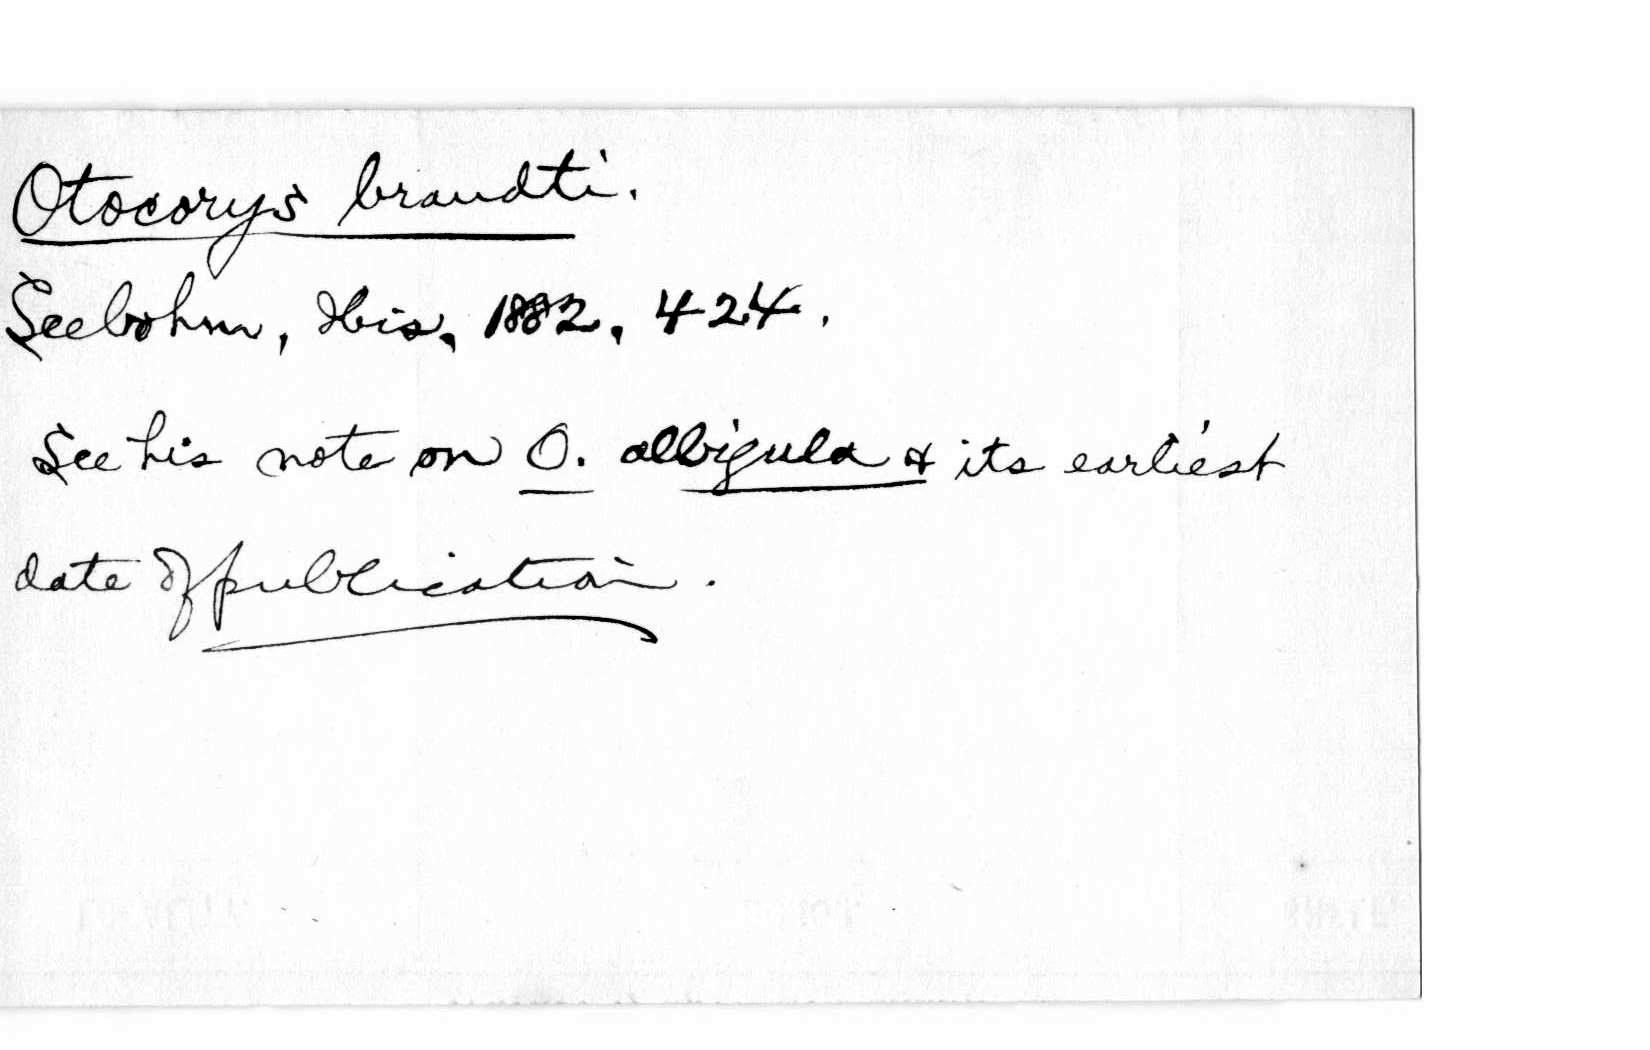 Otocorys brandti.
Seebohm, Ibis, 1882, 424.
See his note on O. albigula & its earliest
date of publication.